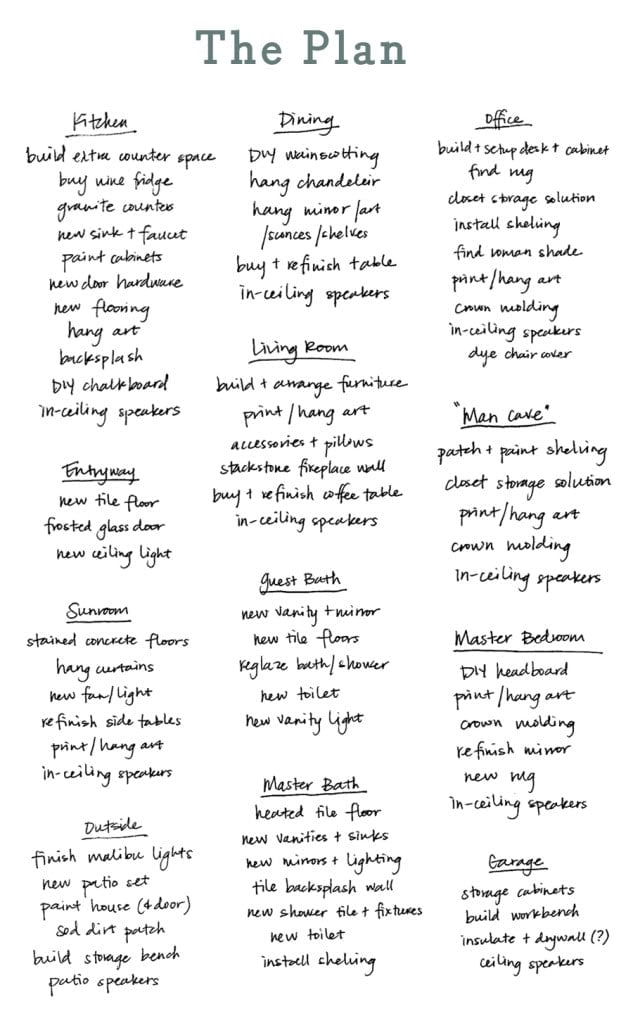 The Plan
Kitchen
build extra counter space
buy wine fridge
granite counters
new sink + faucet
paint cabinets
new door hardware
new flooring
hang art
backsplash
DIY chalkboard
in-ceiling speakers
Entryway
new tile floor
frosted glass door
new ceiling light
Sunroom
stained concrete floors
hang curtains
new fan/light
refinish side tables
print/hang art
in-ceiling speakers
Outside
finish malibu lights
new patio set
paint house (+door)
sod dirt patch
build storage bench
patio speakers
Dining
DIY wainscotting
hang chandeleir
hang mirror/art
/sconces/shelves
buy + refinish table
in-ceiling speakers
Living Room
build + arrange furniture
print/hang art
accessories + pillows
stackstone fireplace wall
buy + refinish coffee table
in-ceiling speakers
guest Bath
new vanity + mirror
new tile floors
reglaze bath/shower
new toilet
new vanity light
Master Bath
heated tile floor
new vanities + sinks
new mirrors + lighting
tile backsplash wall
new shower tile + fixtures
new toilet
install shelving
Office
build + setup desk + cabinet
find rug
closet storage solution
install shelving
find roman shade
print/hang art
crown molding
in-ceiling speakers
dye chair cover
"Man cave"
patch + paint shelving
closet storage solution
print/hang art
crown molding
in-ceiling speakers
Master Bedroom
DIY headboard
print/hang art
crown molding
refinish mirror
new rug
in-ceiling speakers
Garage
storage cabinets
build workbench
insulate + drywall (?)
ceiling speakers